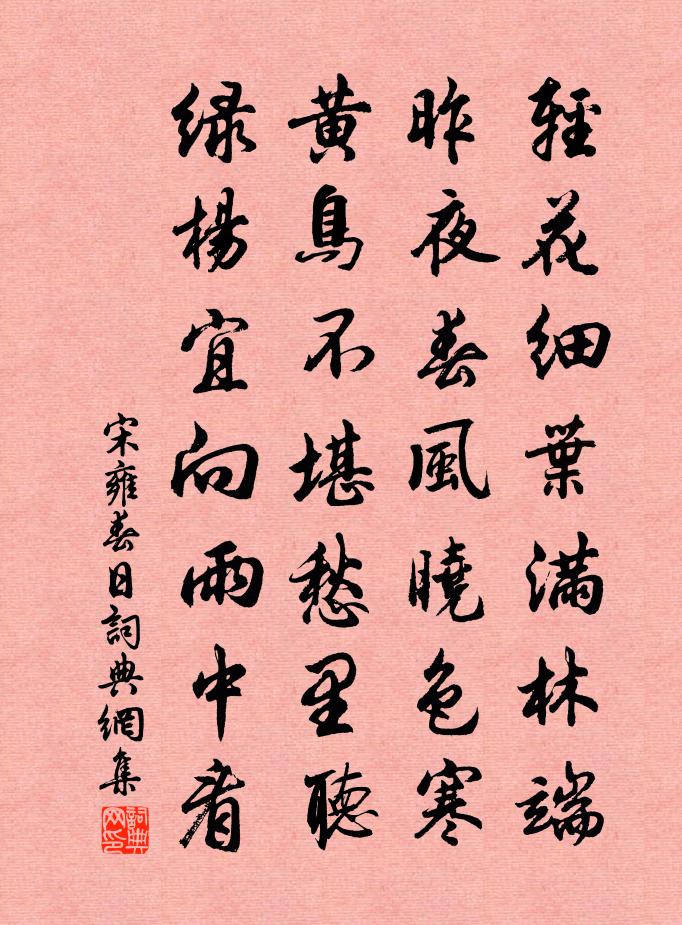 輕花細葉滿林端
昨夜春風曉色寒
黃鳥不堪愁里聽
緑楊宜向雨中看
宋雍春日詞典網集
詞典
网印